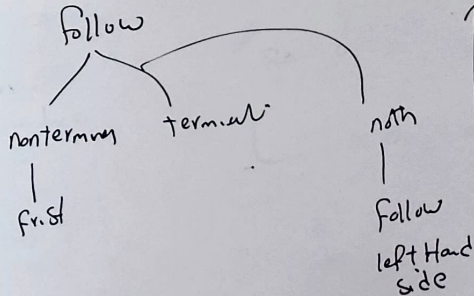 follow
nontermin
terminal
noth
frist
follow
left Hand
side